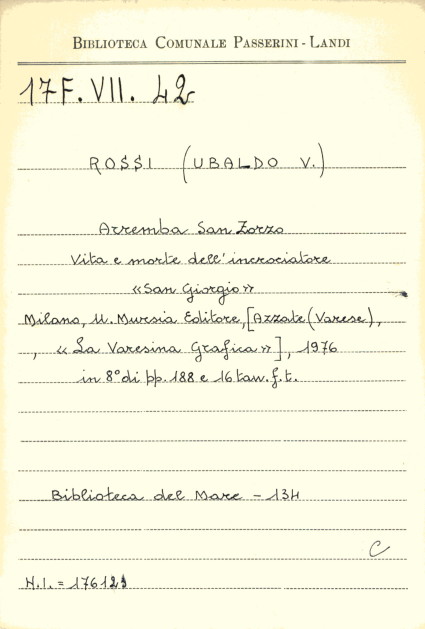 BIBLIOTECA COMUNALE PASSERINI - LANDI
17F. VII. 42
ROSSI (UBALDO V.)
Arremba San Zorzo
Vita e morte dell'incrociatore
«San Giorgio»
Milano, U. Mursia Editore, [Azzate (Varese),
, «La Varesina Grafica»], 1976
in 8° di pp. 188 e 16 tav. f. t.
Biblioteca del Mare - 134
C
N.I. = 176121